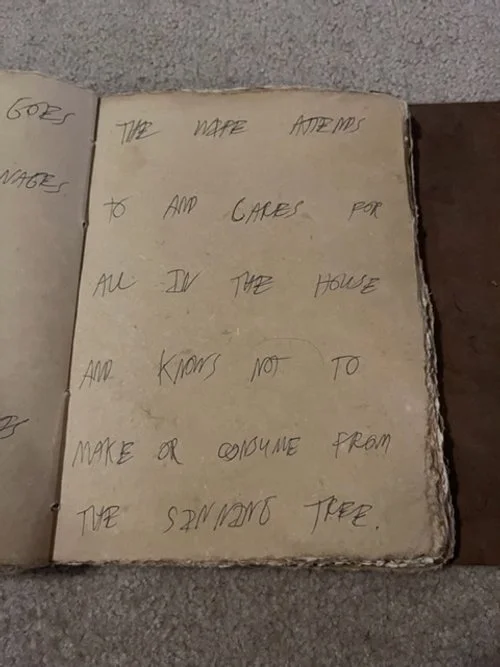 GOES
NAGES
THE WIFE ATTENDS
TO AND CARES FOR
ALL IN THE HOUSE
AND KNOWS NOT TO
MAKE OR CONSUME FROM
THE SINNING TREE.